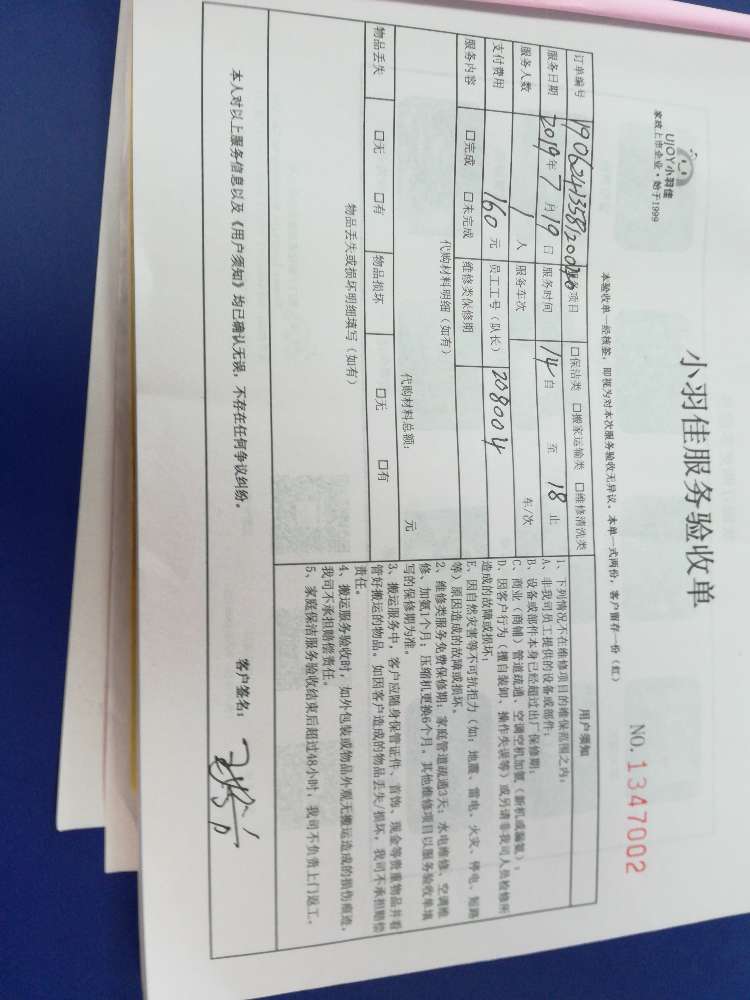 UJOY小羽佳
家政上市企业·始于1999
小羽佳服务验收单
NO.1347002
本验收单一经核签，即视为对本次服务验收无异议。本单一式两份，客户留存一份（红）
订单编号 服务项目 □保洁类 □搬家运输类 □维修清洗类
服务日期 2019年7月19日 服务时间 14自 至 18止
服务人数 1人 服务车次 车/次
支付费用 160元 员工工号（队长） 208004
服务内容 □完成 □未完成 维修类保修期
代购材料明细（如有）
代购材料总额： 元
物品丢失 □无 □有 物品损坏 □无 □有
物品丢失或损坏明细填写（如有）
用户须知
1、下列情况不在维修项目的维保范围之内：
A、非我司员工提供的设备或部件；
B、设备或部件本身已经超过出厂保修期；
C、商业（商铺）管道疏通、空调空机加氨（新机或漏氨）；
D、因客户行为（擅自装卸、操作失误等）或另请非我司人员检修所
造成的故障或损坏；
E、因自然灾害等不可抗拒力（如：地震、雷电、火灾、停电、短路
等）原因造成的故障或损坏。
2、维修类服务免费保修期：家庭管道疏通3天；水电维修、空调维
修、加氨1个月；压缩机更换6个月。其他维修项目以服务验收单填
写的保修期为准。
3、搬运服务中，客户应随身保管证件、首饰、现金等贵重物品并看
管好搬运的物品。如因客户造成的物品丢失/损坏，我司不承担赔偿
责任。
4、搬运服务验收时，如外包装或物品外观无搬运造成的损伤痕迹，
我司不承担赔偿责任。
5、家庭保洁服务验收结束后超过48小时，我司不负责上门返工。
本人对以上服务信息以及《用户须知》均已确认无误，不存在任何争议纠纷。
客户签名：